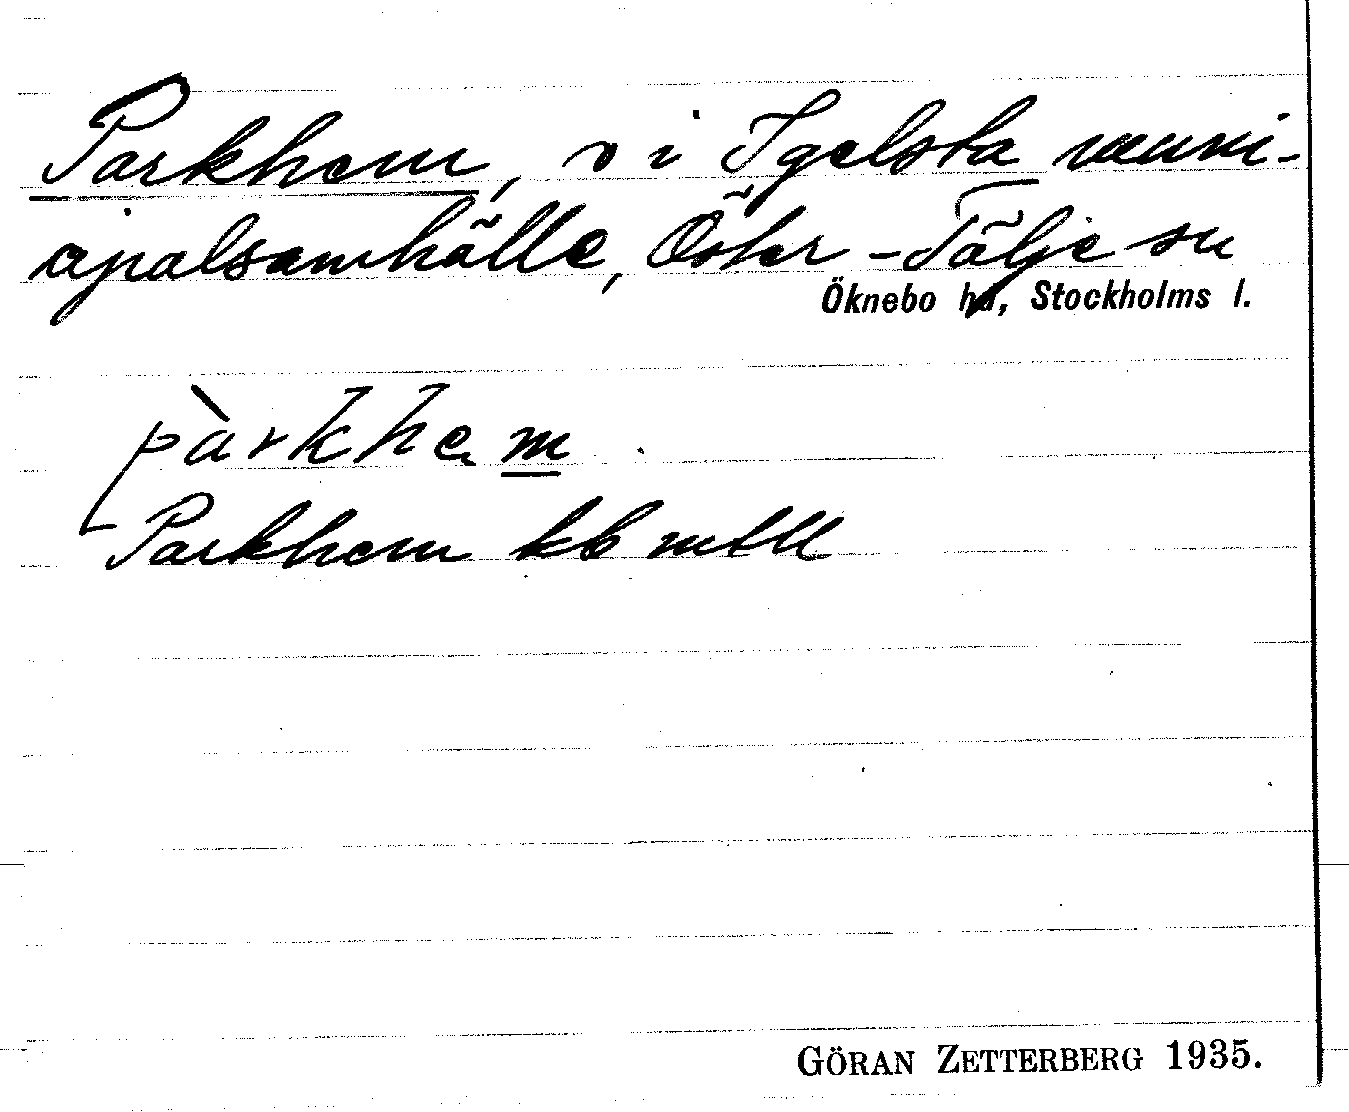 Parkhem, v i Igelsta muni-
cipalsamhälle, Öster-Tälje sn
Öknebo hd, Stockholms l.
pàrkhem
Parkhem kb mtll
GÖRAN ZETTERBERG 1935.